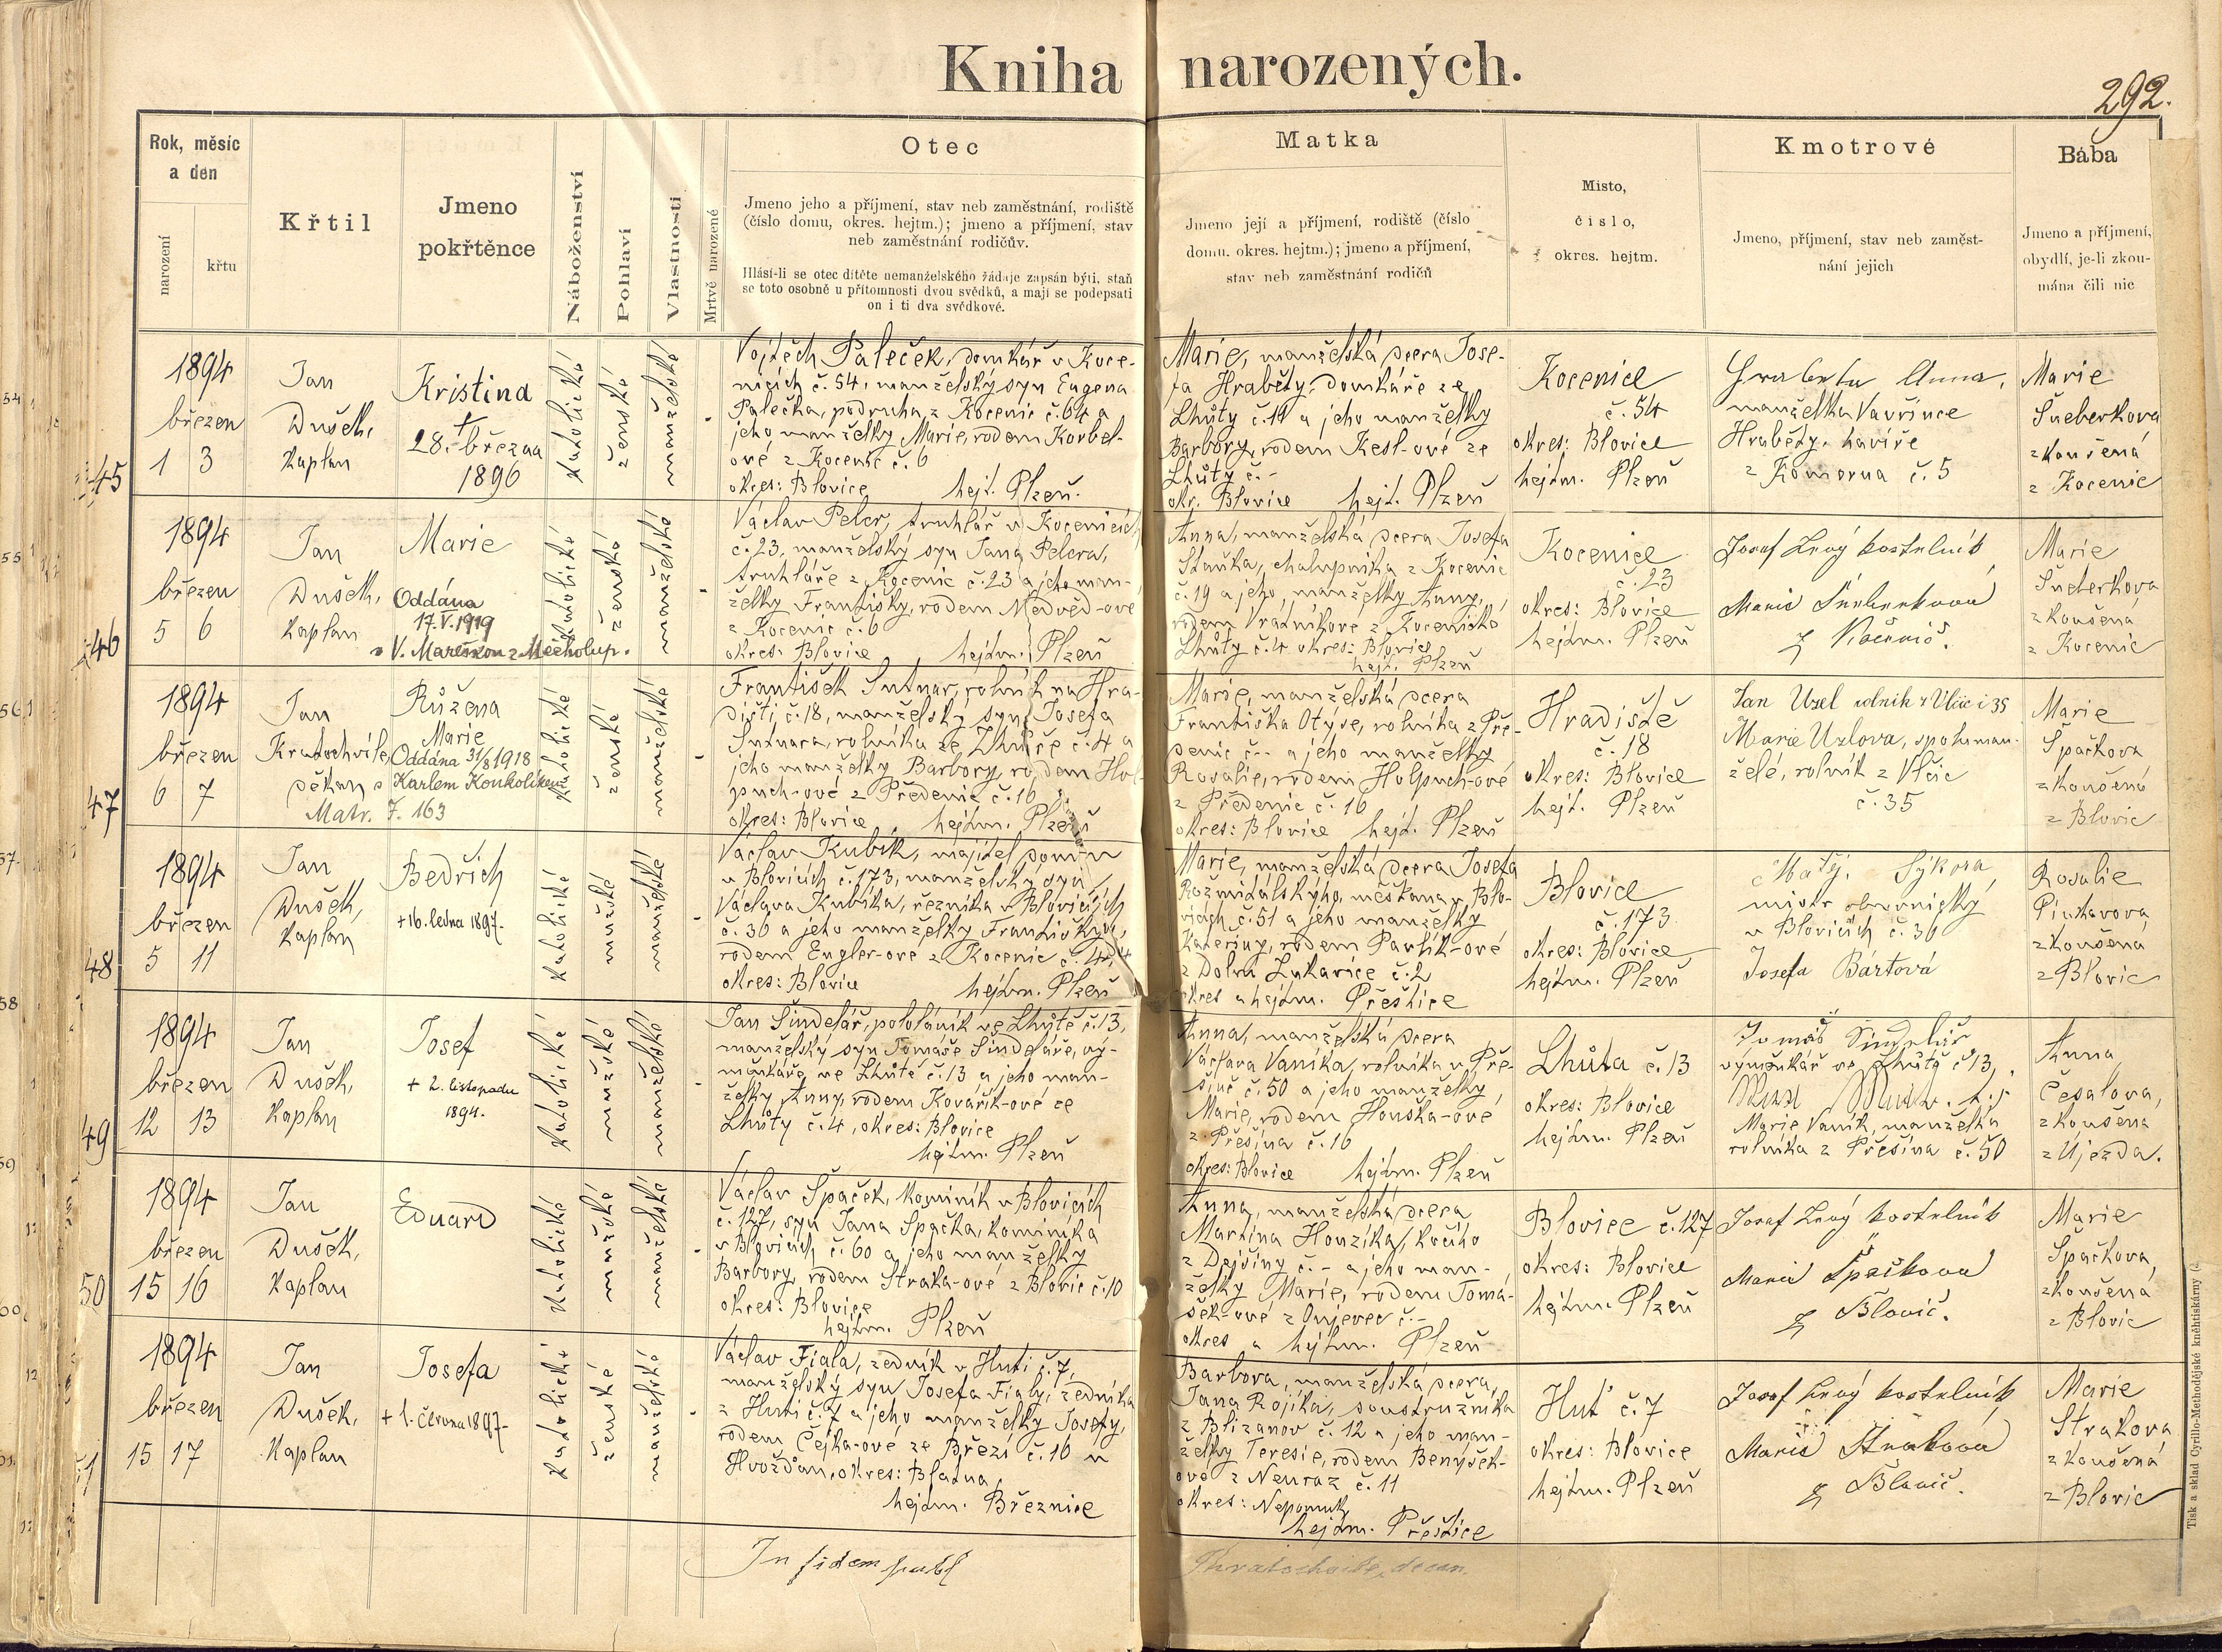 Kniha narozených.
292.
Rok, měsíc
a den
narození
křtu
Křtil
Jmeno
pokřtěnce
Náboženství
Pohlaví
Vlastnosti
Mrtvě narozené
Otec
Jmeno jeho a příjmení, stav neb zaměstnání, rodiště
(číslo domu, okres. hejtm.); jmeno a příjmení, stav
neb zaměstnání rodičův.
Hlásí-li se otec dítěte nemanželského žádaje zapsán býti, staň
se toto osobně u přítomnosti dvou svědků, a mají se podepsati
on i ti dva svědkové.
Matka
Jmeno její a příjmení, rodiště (číslo
domu. okres. hejtm.); jmeno a příjmení,
stav neb zaměstnání rodičů
Místo,
číslo,
okres. hejtm.
Kmotrové
Jmeno, příjmení, stav neb zaměst-
nání jejich
Bába
Jmeno a příjmení,
obydlí, je-li zkou-
mána čili nic
45
1894
březen
1 3
Jan
Dušek,
kaplan
Kristina
+
28. března
1896
katolické
ženské
manželské
-
Vojtěch Paleček, domkář v Koce-
nicích č. 54, manželský syn Eugena
Palečka, podruha z Kocenic č. 64 a
jeho manželky Marie, rodem Korbel-
ové z Kocenic č. 6
okres: Blovice hejt. Plzeň.
Marie, manželská dcera Jose-
fa Hraběty, domkáře ze
Lhůty č. 19 a jeho manželky
Barbory, rodem Kesl-ové ze
Lhůty č. -
okr. Blovice hejt. Plzeň
Kocenice
č. 54
okres: Blovice
hejtm. Plzeň
Hraběta Anna,
manželka Vavřince
Hraběty, havíře
z Komorna č. 5
Marie
Šneberkova
zkoušená
z Kocenic
46
1894
březen
5 6
Jan
Dušek,
kaplan
Marie
Oddána
17.V.1919
s V. Marešem z Měcholup.
katolické
ženské
manželské
-
Václav Pelcr, truhlář v Kocenicích
č. 23, manželský syn Jana Pelcra,
truhláře z Kocenic č. 23 a jeho man-
želky Františky, rodem Medvěd-ové
z Kocenic č. 6
okres: Blovice hejtm. Plzeň
Anna, manželská dcera Josefa
Staňka, chalupníka z Kocenic
č. 19 a jeho manželky Anny,
rodem Vrátníkové z Kocenické
Lhůty č. 4 okres: Blovice
hejt. Plzeň
Kocenice
č. 23
okres: Blovice
hejtm. Plzeň
Josef Levý kostelník
Marie Šneberkova
z Kocenic.
Marie
Šneberkova
zkoušená
z Kocenic
47
1894
březen
6 7
Jan
Kratochvíle,
děkan
Růžena
Marie
Oddána 31/8 1918
s Karlem Koukolíkem
Matr. 7. 163
katolické
ženské
manželské
-
František Sutnar, rolník na Hra-
dišti č. 18, manželský syn Josefa
Sutnara, rolníka ze Ždírce č. 4 a
jeho manželky Barbory, rodem Hol-
puch-ové z Předenic č. 16
okres: Blovice hejtm. Plzeň
Marie, manželská dcera
Františka Otýse, rolníka z Pře-
denic č. - a jeho manželky
Rosalie, rodem Holpuch-ové
z Předenic č. 16
okres: Blovice hejt. Plzeň
Hradiště
č. 18
okres: Blovice
hejt. Plzeň
Jan Uzel rolník z Vlčic č 35
Marie Uzlova, spolu man-
želé, rolník z Vlčic
č. 35
Marie
Špačkova
zkoušená
z Blovic
48
1894
březen
5 11
Jan
Dušek,
kaplan
Bedřich
+ 16. ledna 1897.
katolické
mužské
manželské
-
Václav Kubík, majitel domu
v Blovicích č. 173, manželský syn
Václava Kubíka, řezníka v Blovicích
č. 36 a jeho manželky Františky,
rodem Engler-ové z Kocenic č. 44
okres: Blovice hejtm. Plzeň
Marie, manželská dcera Josefa
Rožmitálského, měšťana v Blo-
vicích č. 51 a jeho manželky
Kateřiny, rodem Pavlík-ové
z Dolní Lukavice č. 2
okres a hejtm. Přeštice
Blovice
č. 173.
okres: Blovice
hejtm. Plzeň
Matěj Sýkora,
mistr obuvnický
v Blovicích č. 36
Josefa Bártová
Rosalie
Pinkavova
zkoušená
z Blovic
49
1894
březen
12 13
Jan
Dušek,
kaplan
Josef
+ 2. listopadu
1894.
katolické
mužské
manželské
-
Jan Šindelář, pololáník ve Lhůtě č. 13,
manželský syn Tomáše Šindeláře, vý-
měnkáře ve Lhůtě č. 13 a jeho man-
želky Anny, rodem Kovářík-ové ze
Lhůty č. 4, okres: Blovice
hejtm. Plzeň
Anna, manželská dcera
Václava Vaníka, rolníka v Pře-
šíně č. 50 a jeho manželky
Marie, rodem Houška-ové
z Přešína č. 16
okres: Blovice hejtm. Plzeň
Lhůta č. 13
okres: Blovice
hejtm. Plzeň
Tomáš Šindelář
výměnkář ve Lhůtě č 13,
Marie Vaník, manželka
rolníka z Přešína č. 50
Anna
Česalova,
zkoušená
z Újezda.
50
1894
březen
15 16
Jan
Dušek,
kaplan
Eduard
katolické
mužské
manželské
-
Václav Špaček, kominík v Blovicích
č. 127, syn Jana Špačka, kominíka
v Blovicích č. 60 a jeho manželky
Barbory, rodem Straka-ové z Blovic č. 10
okres: Blovice
hejtm. Plzeň
Anna, manželská dcera
Martina Houzíka, kočího
z Dejšiny č. - a jeho man-
želky Marie, rodem Tomá-
šek-ové z č. -
okres a hejtm. Plzeň
Blovice č. 127
okres: Blovice
hejtm. Plzeň
Josef Levý kostelník
Marie Špačkova
z Blovic.
Marie
Špačkova,
zkoušená
z Blovic
1894
březen
15 17
Jan
Dušek,
kaplan
Josefa
+ 1. června 1897-
katolické
ženské
manželské
-
Václav Fiala, zedník v Huti č. 7,
manželský syn Josefa Fialy, zedníka
z Huti č. 7 a jeho manželky Josefy,
rodem Čejka-ové ze Březí č. 16 u
Hvožďan, okres: Blatna
hejtm. Březnice
Barbora, manželská dcera
Jana Rojíka, soustružníka
z Blizanov č. 12 a jeho man-
želky Teresie, rodem Benýšek-
ové z Neuraz č. 11
okres: Nepomuk
hejtm. Přeštice
Huť č. 7
okres: Blovice
hejtm. Plzeň
Josef Levý kostelník
Marie Strakova
z Blovic.
Marie
Strakova
zkoušená
z Blovic
In fidem publ
Kratochvíle, decan.
Tisk a sklad Cyrillo-Methodějské knihtiskárny